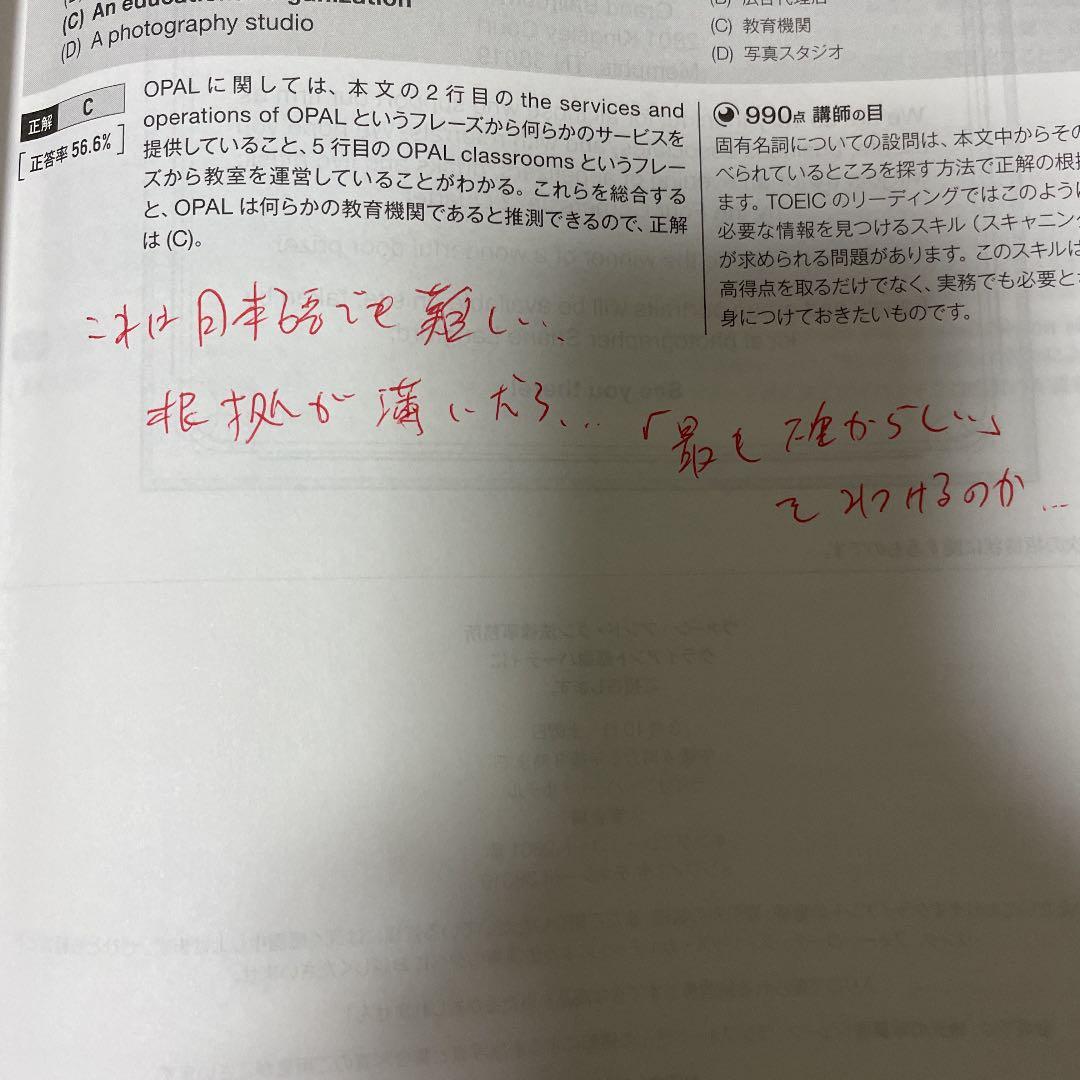 (C) An educational organization
(D) A photography studio
(C) 教育機関
(D) 写真スタジオ
正解 C
[正答率 56.6%]
OPAL に関しては、本文の 2 行目の the services and
operations of OPAL というフレーズから何らかのサービスを
提供していること、5 行目の OPAL classrooms というフレー
ズから教室を運営していることがわかる。これらを総合する
と、OPAL は何らかの教育機関であると推測できるので、正解
は (C)。
990点 講師の目
固有名詞についての設問は、本文中からその
べられているところを探す方法で正解の根拠
ます。TOEIC のリーディングではこのように
必要な情報を見つけるスキル(スキャニング
が求められる問題があります。このスキルは
高得点を取るだけでなく、実務でも必要と
身につけておきたいものです。
これは日本語でも難しい..
根拠が薄いだろ...
「最も確からしい」
を見つけるのか...